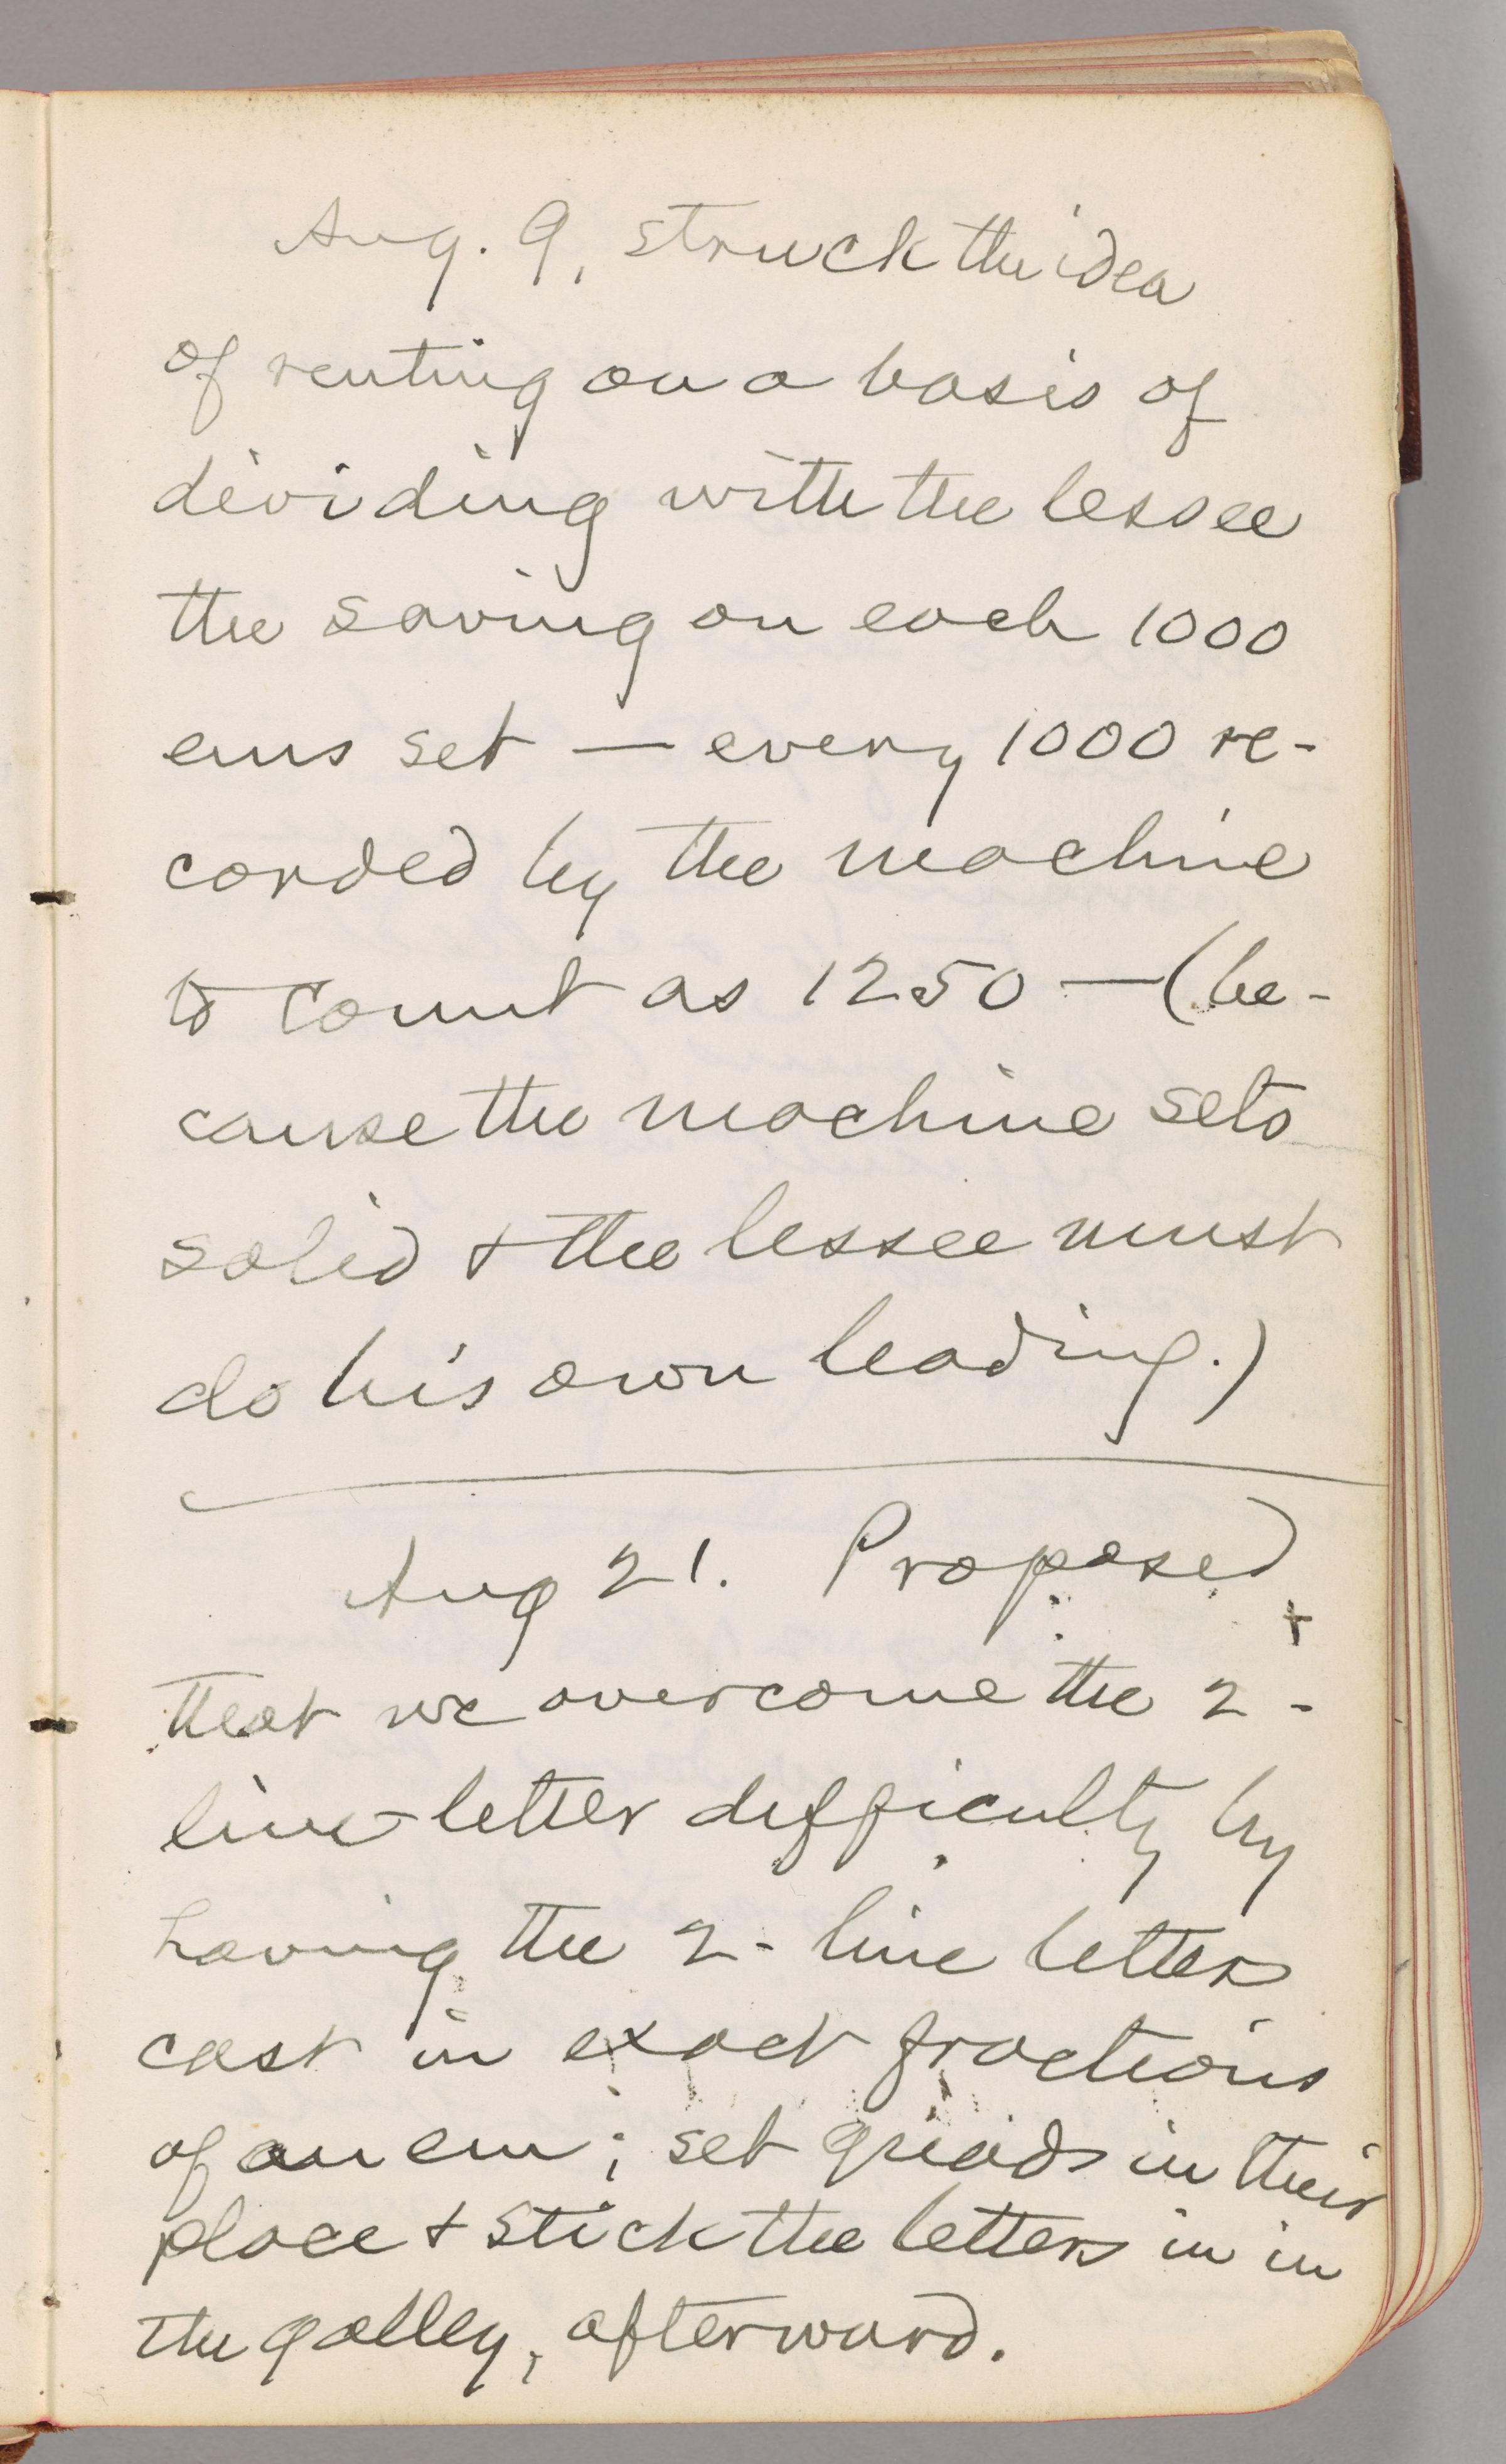 Aug. 9, struck the idea
of renting on a basis of
dividing with the lessee
the saving on each 1000
ems set — every 1000 re-
corded by the machine
to count as 1250 — (be-
cause the machine sets
solid & the lessee must
do his own leading.)
Aug 21. Proposed
+
that we overcome the 2-
line-letter difficulty by
having the 2-line letters
cast in exact fractions
of an em; set quads in their
place & stick the letters in in
the galley, afterward.